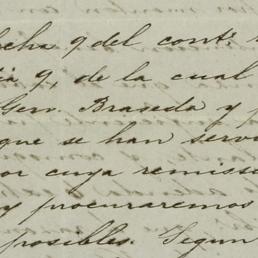 echa 9 del cont.
9, de la cual
Gen. Braseda y p
que se han serv
or cuya remis
y procuraremos
posibles. Segun